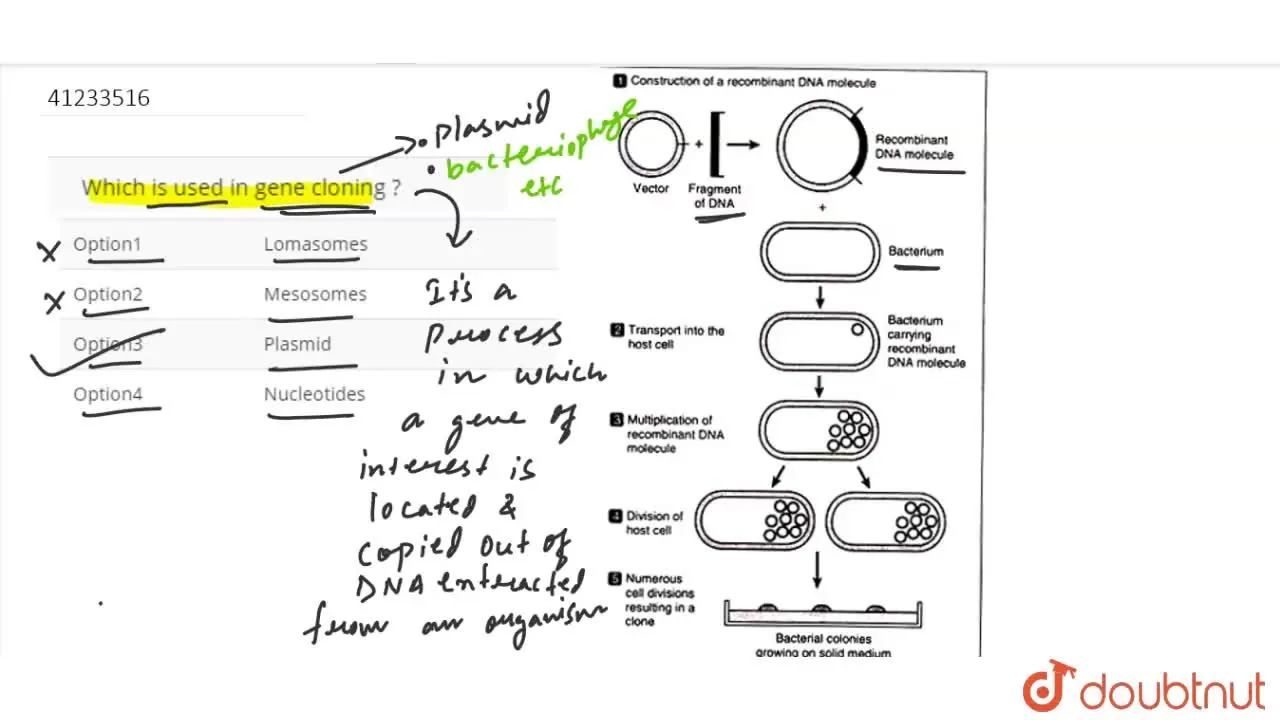 41233516
Which is used in gene cloning ?
Option1 Lomasomes
Option2 Mesosomes
Option3 Plasmid
Option4 Nucleotides
• Plasmid
• bacteriophage
etc
It's a
process
in which
a gene of
interest is
located &
copied out of
DNA enteracted
from an organism
1 Construction of a recombinant DNA molecule
+
Vector
Fragment
of DNA
Recombinant
DNA molecule
+
Bacterium
2 Transport into the
host cell
Bacterium
carrying
recombinant
DNA molecule
3 Multiplication of
recombinant DNA
molecule
4 Division of
host cell
5 Numerous
cell divisions
resulting in a
clone
Bacterial colonies
growing on solid medium
doubtnut